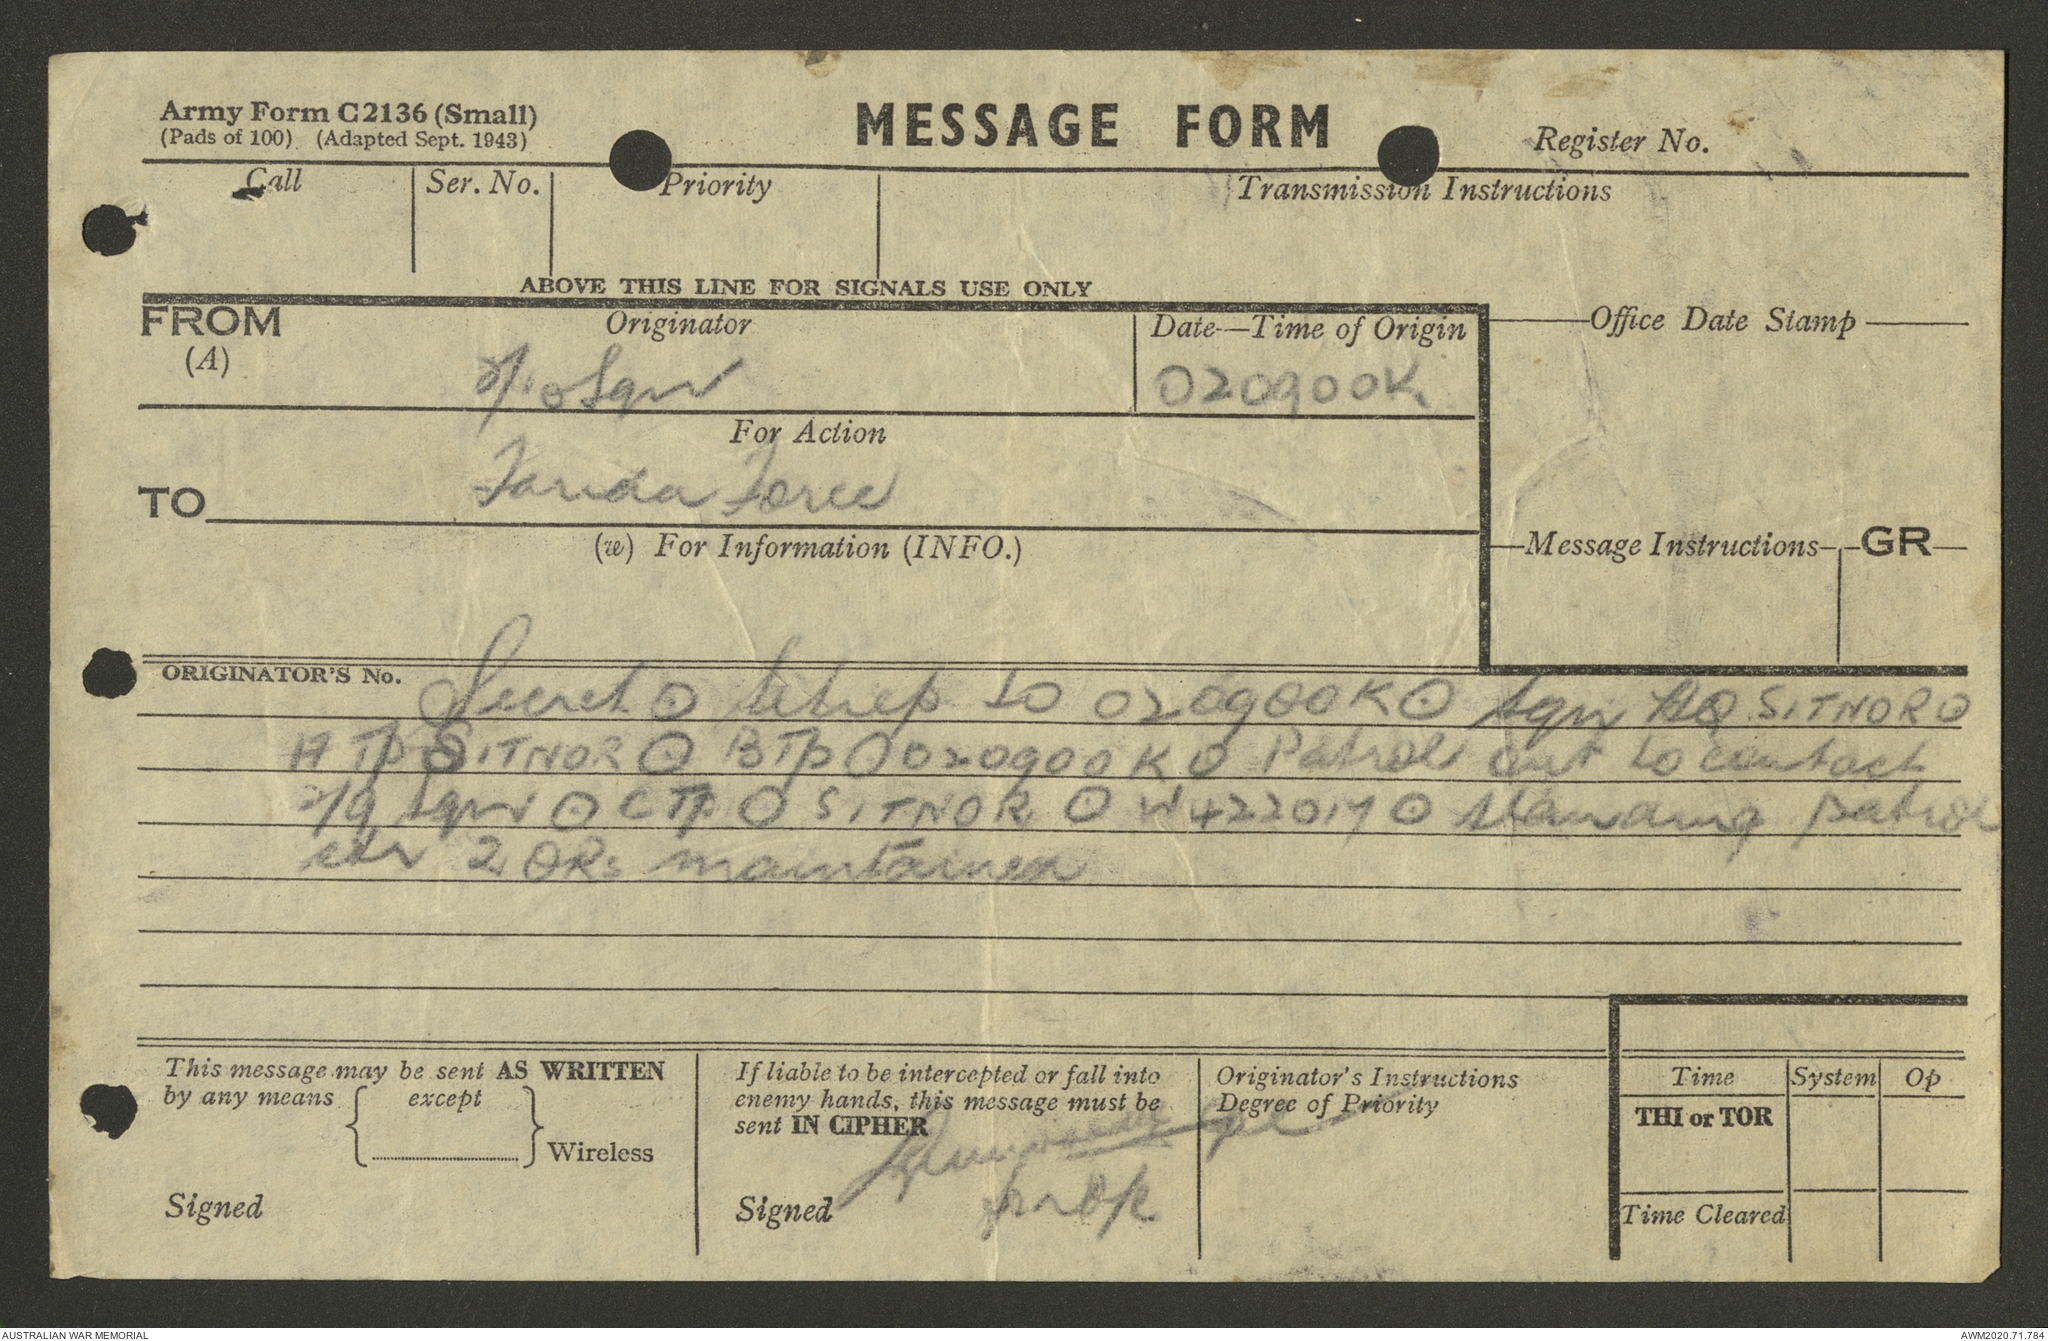 Army Form C2136 (Small)
(Pads of 100) (Adapted Sept. 1943)
MESSAGE FORM
Register No.
Call
Ser. No.
Priority
Transmission Instructions
ABOVE THIS LINE FOR SIGNALS USE ONLY
FROM
(A)
Originator
Sqn
Date—Time of Origin
020900K.
Office Date Stamp
For Action
TO
Farida Force
(w) For Information (INFO.)
Message Instructions
GR
ORIGINATOR'S No.
Secret ⊙ Sitrep to 020900K ⊙ Sqn HQ SITNOR ⊙
A Tp SITNOR ⊙ B Tp ⊙ 020900K ⊙ Patrol out to contact
2/9 Sqn ⊙ C Tp ⊙ SITNOR ⊙ W422017 ⊙ Standing patrol
2 ORs maintained
This message may be sent AS WRITTEN
by any means { except } Wireless
Signed
If liable to be intercepted or fall into
enemy hands, this message must be
sent IN CIPHER
Signed
Originator's Instructions
Degree of Priority
Time
System
Op
THI or TOR
Time Cleared
AUSTRALIAN WAR MEMORIAL
AWM2020.71.784